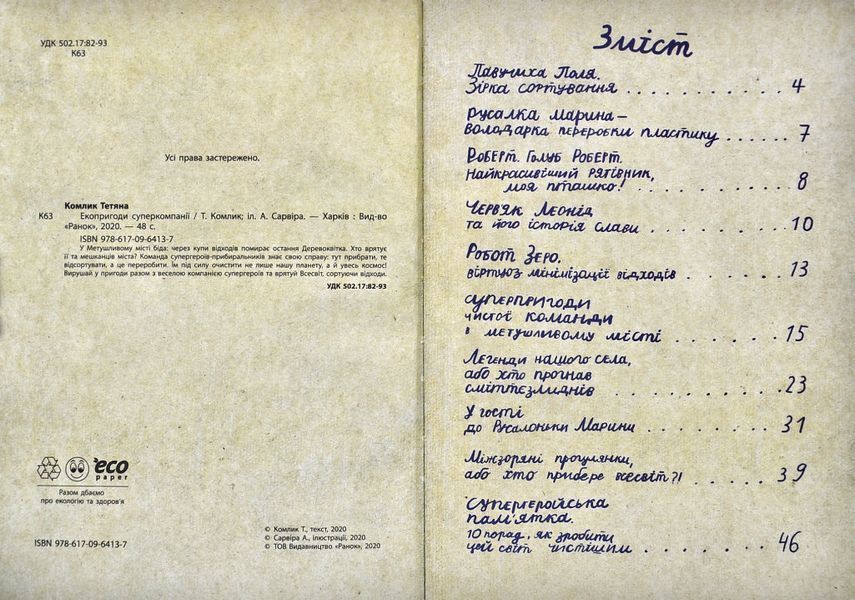 УДК 502.17:82-93
К63
Усі права застережено.
Комлик Тетяна
К63 Екопригоди суперкомпанії / Т. Комлик; іл. А. Сарвіра. — Харків : Вид-во
«Ранок», 2020. — 48 с.
ISBN 978-617-09-6413-7
У Метушливому місті біда: через купи відходів помирає остання Деревоквітка. Хто врятує
її та мешканців міста? Команда супергероїв-прибиральників знає свою справу: тут прибрати, те
відсортувати, а це переробити. Їм під силу очистити не лише нашу планету, а й увесь космос!
Вирушай у пригоди разом з веселою компанією супергероїв та врятуй Всесвіт, сортуючи відходи.
УДК 502.17:82-93
eco
paper
Разом дбаємо
про екологію та здоров'я
ISBN 978-617-09-6413-7
© Комлик Т., текст, 2020
© Сарвіра А., ілюстрації, 2020
© ТОВ Видавництво «Ранок», 2020
Зміст
Павучиха Поля.
Зірка сортування . . . . . . . . . . . 4
Русалка Марина —
володарка переробки пластику . . . . . . 7
Роберт. Голуб Роберт.
Найкрасивіший рятівник,
моя пташко! . . . . . . . . . . . 8
Червяк Леонід
та його історія слави . . . . . . . . . 10
Робот Зеро.
віртуоз мінімізації відходів . . . . . . . 13
Суперпригоди
чистої команди
в метушливому місті . . . . . . . . 15
Легенди нашого села,
або хто прогнав
сміттєзлиднів . . . . . . . . . . . 23
У гості
до Русалоньки Марини . . . . . . . . 31
Міжзоряні прогулянки,
або хто прибере всесвіт?! . . . . . . 39
Супергеройська
пам'ятка.
10 порад, як зробити
цей світ чистішим . . . . . . . . 46